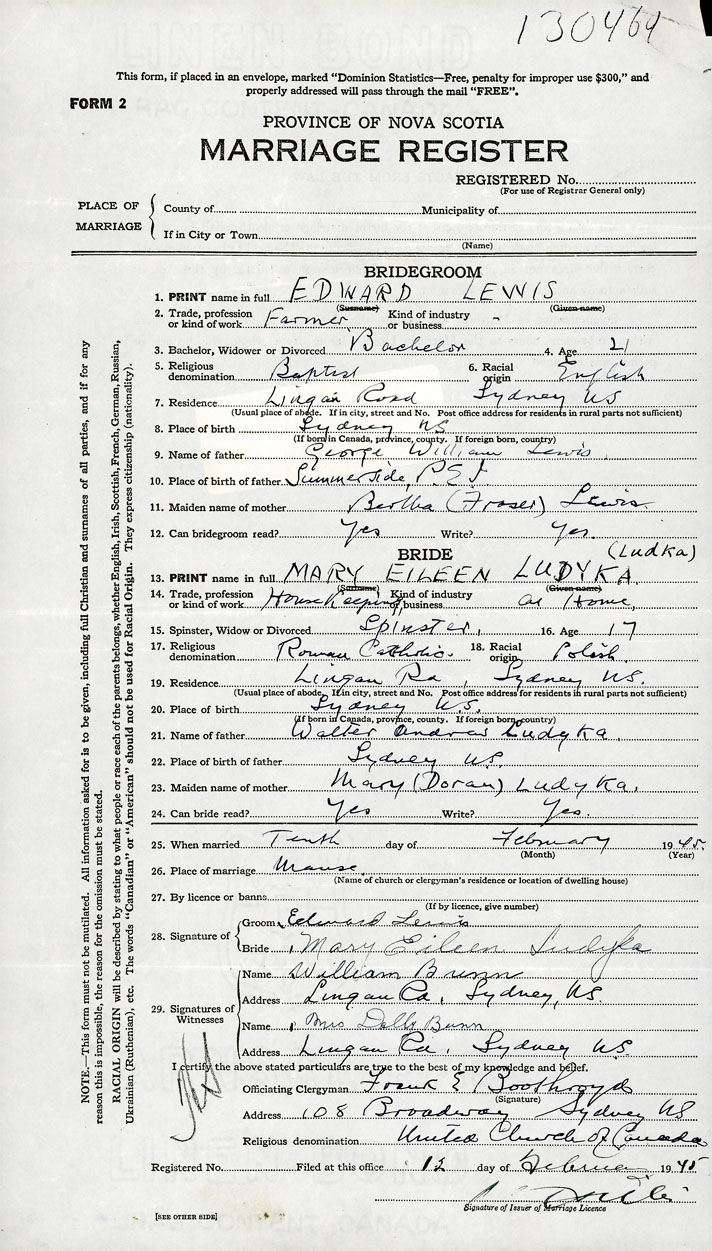 130464
This form, if placed in an envelope, marked "Dominion Statistics—Free, penalty for improper use $300," and
properly addressed will pass through the mail "FREE".
FORM 2
PROVINCE OF NOVA SCOTIA
MARRIAGE REGISTER
REGISTERED No.
(For use of Registrar General only)
PLACE OF MARRIAGE
County of Municipality of
If in City or Town
(Name)
BRIDEGROOM
1. PRINT name in full EDWARD LEWIS
(Surname) (Given name)
2. Trade, profession or kind of work Farmer Kind of industry or business -
3. Bachelor, Widower or Divorced Bachelor 4. Age 21
5. Religious denomination Baptist 6. Racial origin English
7. Residence Lingan Road Sydney NS
(Usual place of abode. If in city, street and No. Post office address for residents in rural parts not sufficient)
8. Place of birth Sydney NS
(If born in Canada, province, county. If foreign born, country)
9. Name of father George William Lewis
10. Place of birth of father Summerside, P.E.I
11. Maiden name of mother Bertha (Fraser) Lewis
12. Can bridegroom read? Yes Write? Yes.
BRIDE (Ludka)
13. PRINT name in full MARY EILEEN LUDYKA
(Surname) (Given name)
14. Trade, profession or kind of work House Keeping Kind of industry or business at Home,
15. Spinster, Widow or Divorced Spinster, 16. Age 17
17. Religious denomination Roman Catholic. 18. Racial origin Polish
19. Residence Lingan Rd, Sydney NS.
(Usual place of abode. If in city, street and No. Post office address for residents in rural parts not sufficient)
20. Place of birth Sydney N.S.
(If born in Canada, province, county. If foreign born, country)
21. Name of father Walter Andrew Ludyka.
22. Place of birth of father Sydney NS.
23. Maiden name of mother Mary (Doran) Ludyka.
24. Can bride read? Yes Write? Yes.
25. When married Tenth day of February 1945.
(Month) (Year)
26. Place of marriage Manse.
(Name of church or clergyman's residence or location of dwelling house)
27. By licence or banns
(If by licence, give number)
28. Signature of
Groom Edward Lewis
Bride Mary Eileen Ludyka
29. Signatures of Witnesses
Name William Bunn
Address Lingan Rd, Sydney, NS.
Name Mrs Dolly Bunn
Address Lingan Rd, Sydney NS.
I certify the above stated particulars are true to the best of my knowledge and belief.
Officiating Clergyman Frank E Boothroyd
(Signature)
Address 108 Broadway Sydney NS
Religious denomination United Church of Canada
Registered No. Filed at this office 12 day of February 1945
Signature of Issuer of Marriage Licence
[SEE OTHER SIDE]
NOTE.—This form must not be mutilated. All information asked for is to be given, including full Christian and surnames of all parties, and if for any
reason this is impossible, the reason for the omission must be stated.
RACIAL ORIGIN will be described by stating to what people or race each of the parents belongs, whether English, Irish, Scottish, French, German, Russian,
Ukrainian (Ruthenian), etc. The words "Canadian" or "American" should not be used for Racial Origin. They express citizenship (nationality).